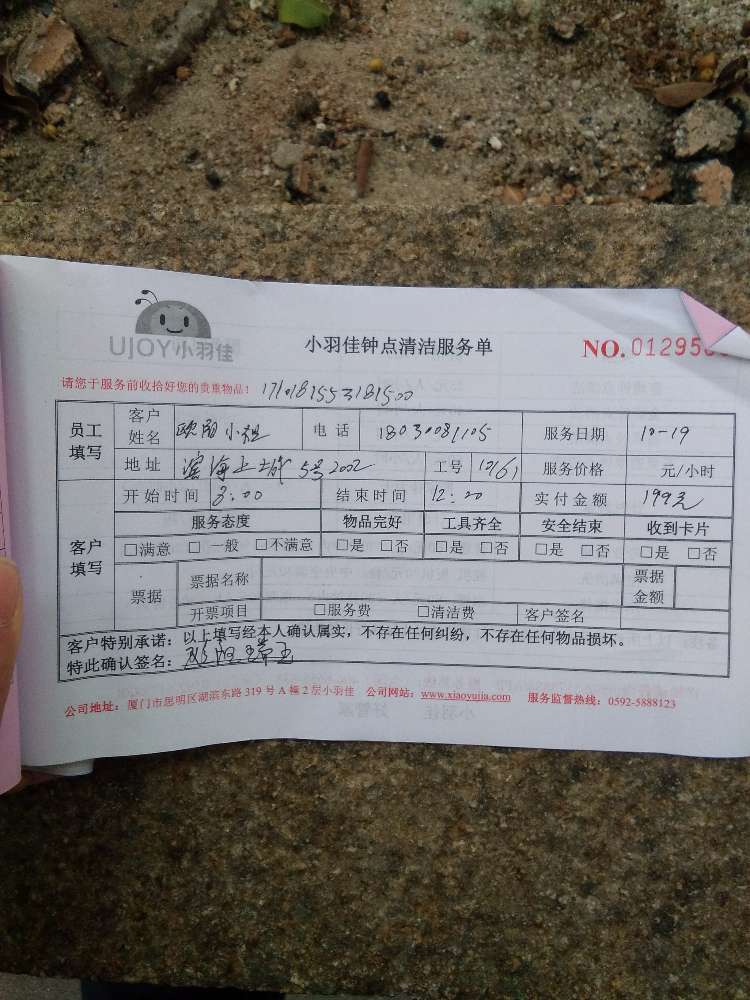 UJOY小羽佳
小羽佳钟点清洁服务单
NO. 01295
请您于服务前收拾好您的贵重物品！ 1710181553181500
员工填写 客户姓名 欧阳小姐 电话 18030081105 服务日期 10-19
地址 滨海上城5号2002 工号 1216 服务价格 元/小时
客户填写 开始时间 8:00 结束时间 12:00 实付金额 199元
服务态度 物品完好 工具齐全 安全结束 收到卡片
□满意 □一般 □不满意 □是 □否 □是 □否 □是 □否 □是 □否
票据 票据名称 票据金额
开票项目 □服务费 □清洁费 客户签名
客户特别承诺：以上填写经本人确认属实，不存在任何纠纷，不存在任何物品损坏。
特此确认签名：
公司地址：厦门市思明区湖滨东路319号A幢2层小羽佳 公司网站：www.xiaoyujia.com 服务监督热线：0592-5888123